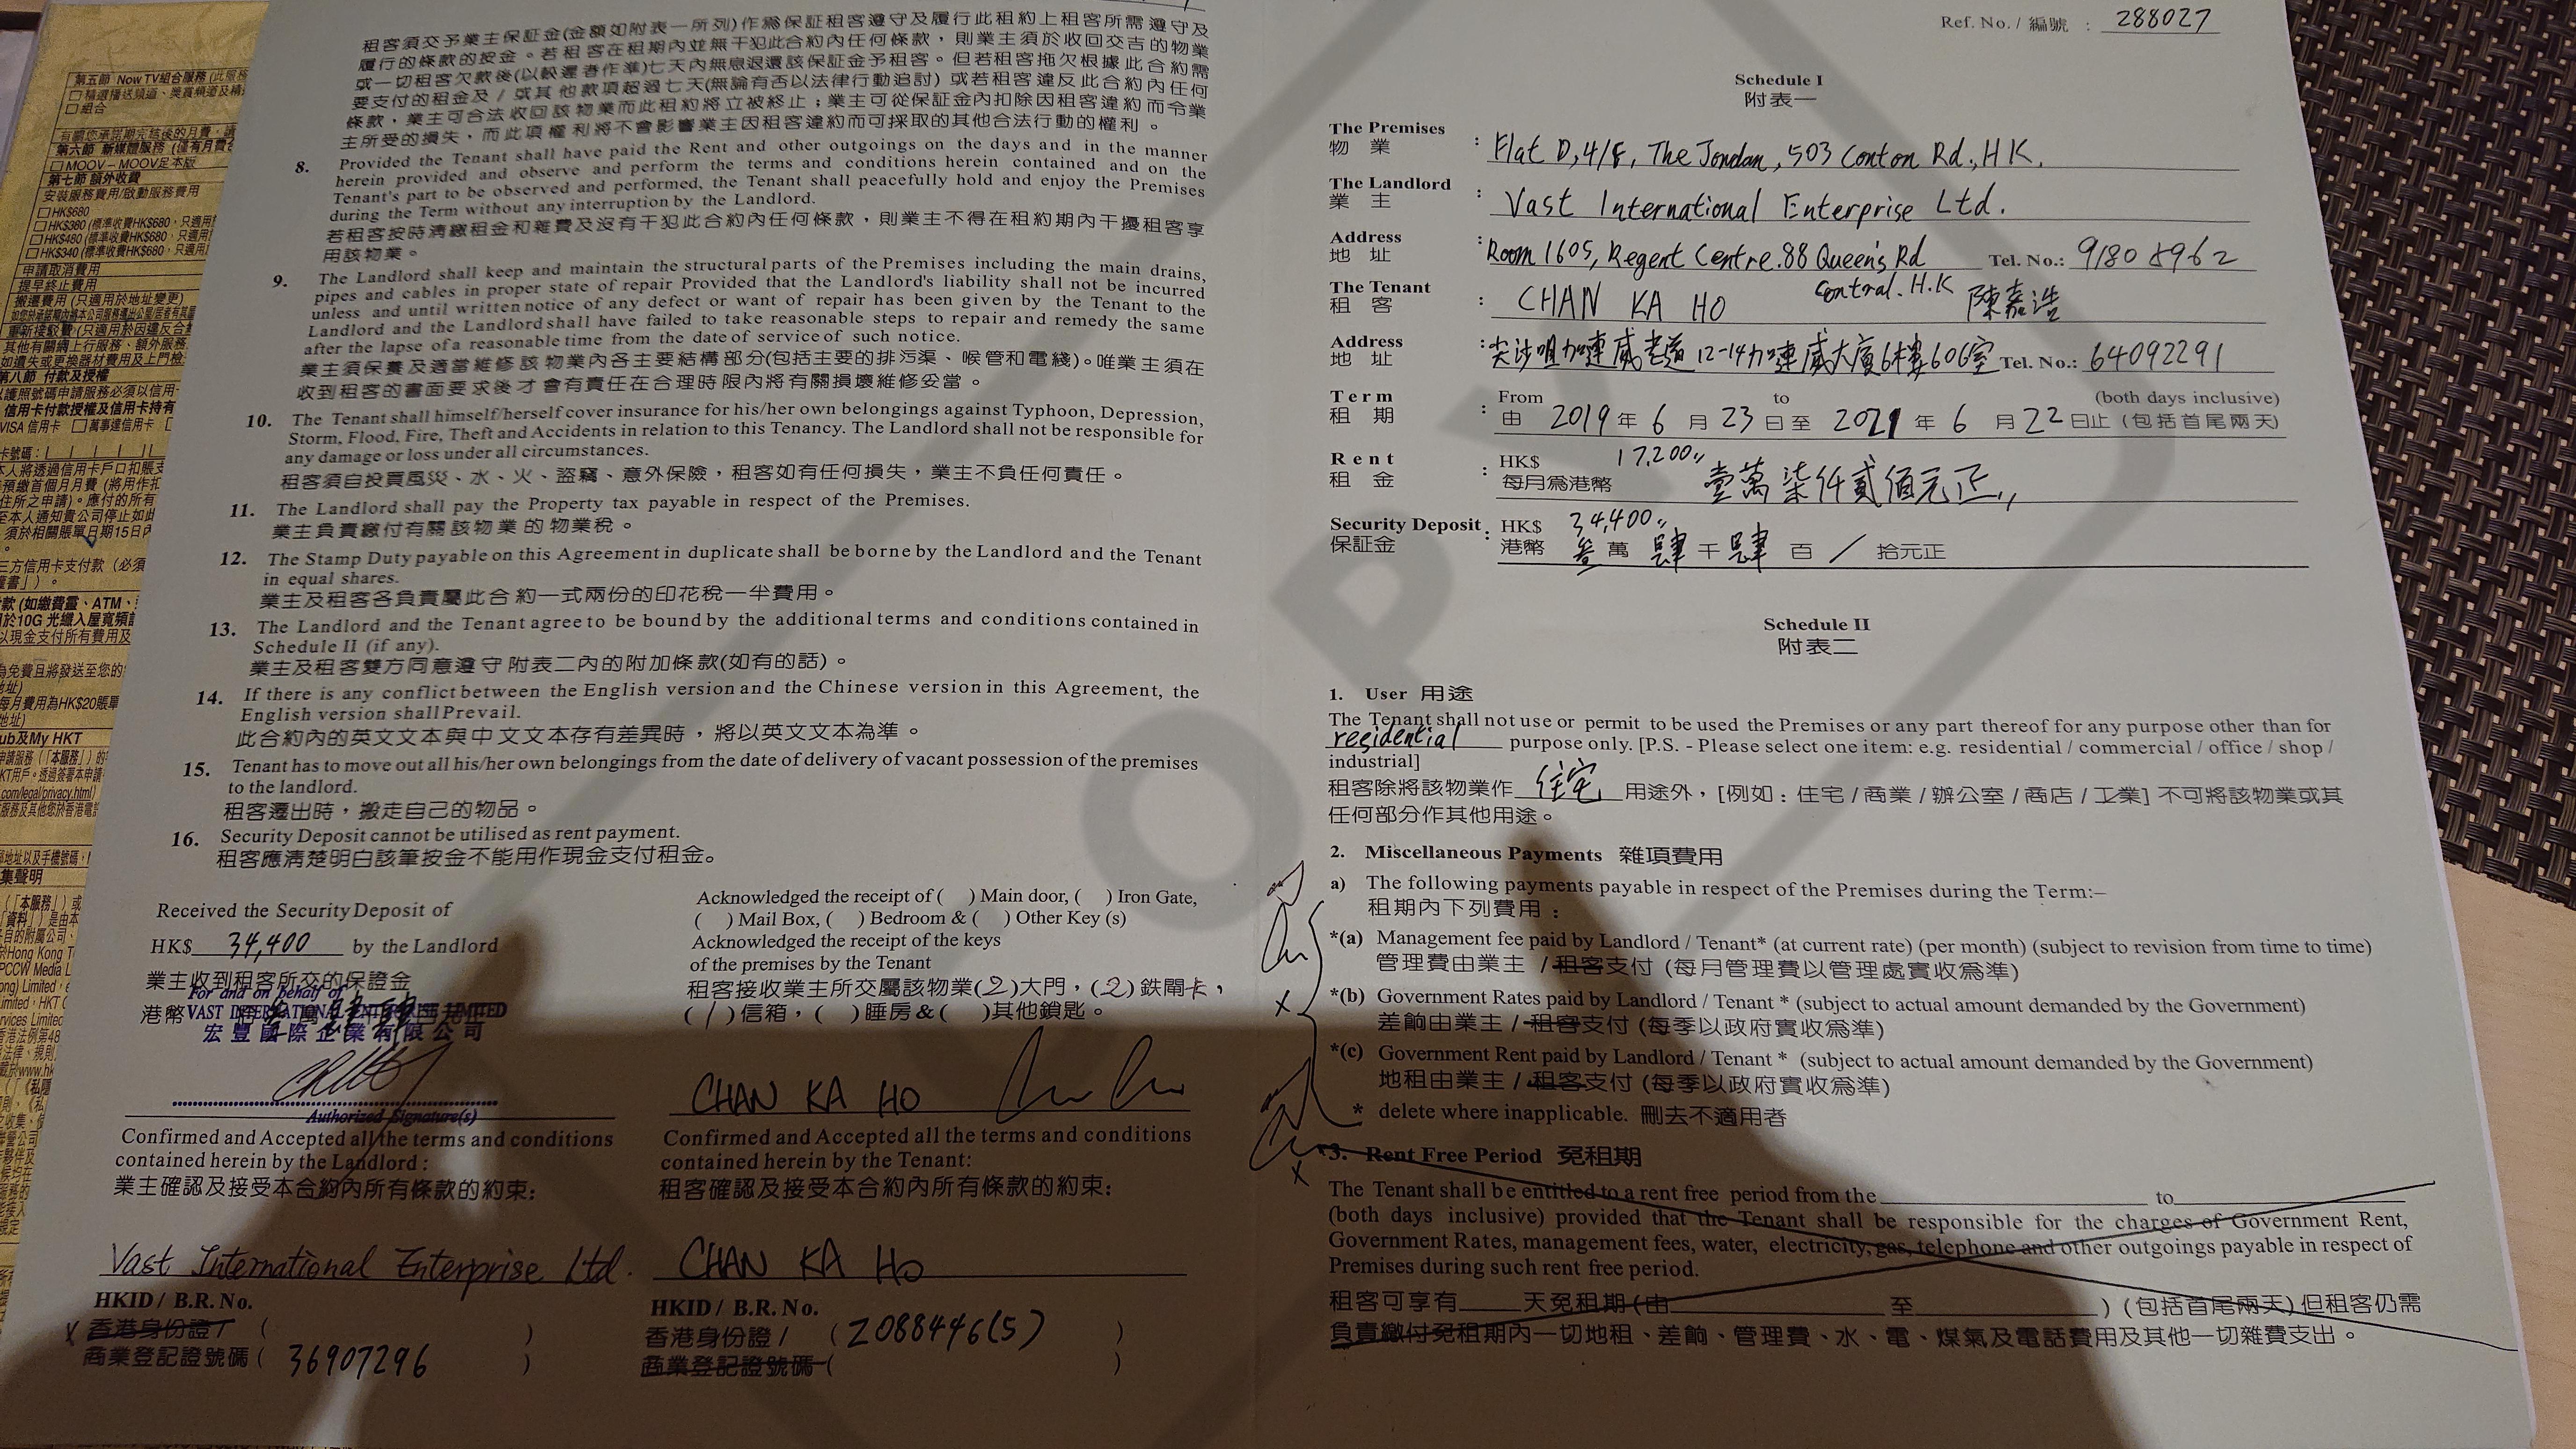 租客須交予業主保証金(金額如附表一所列)作為保証租客遵守及履行此租約上租客所需遵守及
履行的條款的按金。若租客在租期內並無干犯此合約內任何條款，則業主須於收回交吉的物業
或一切租客欠款後(以較遲者作準)七天內無息退還該保証金予租客。但若租客拖欠根據此合約需
要支付的租金及 / 或其他款項超過七天(無論有否以法律行動追討) 或若租客違反此合約內任何
條款，業主可合法收回該物業而此租約將立被終止；業主可從保証金內扣除因租客違約而令業
主所受的損失，而此項權利將不會影響業主因租客違約而可採取的其他合法行動的權利。
8. Provided the Tenant shall have paid the Rent and other outgoings on the days and in the manner
herein provided and observe and perform the terms and conditions herein contained and on the
Tenant's part to be observed and performed, the Tenant shall peacefully hold and enjoy the Premises
during the Term without any interruption by the Landlord.
若租客按時清繳租金和雜費及沒有干犯此合約內任何條款，則業主不得在租約期內干擾租客享
用該物業。
9. The Landlord shall keep and maintain the structural parts of the Premises including the main drains,
pipes and cables in proper state of repair Provided that the Landlord's liability shall not be incurred
unless and until written notice of any defect or want of repair has been given by the Tenant to the
Landlord and the Landlord shall have failed to take reasonable steps to repair and remedy the same
after the lapse of a reasonable time from the date of service of such notice.
業主須保養及適當維修該物業內各主要結構部分(包括主要的排污渠、喉管和電綫)。唯業主須在
收到租客的書面要求後才會有責任在合理時限內將有關損壞維修妥當。
10. The Tenant shall himself/herself cover insurance for his/her own belongings against Typhoon, Depression,
Storm, Flood, Fire, Theft and Accidents in relation to this Tenancy. The Landlord shall not be responsible for
any damage or loss under all circumstances.
租客須自投買風災、水、火、盜竊、意外保險，租客如有任何損失，業主不負任何責任。
11. The Landlord shall pay the Property tax payable in respect of the Premises.
業主負責繳付有關該物業的物業稅。
12. The Stamp Duty payable on this Agreement in duplicate shall be borne by the Landlord and the Tenant
in equal shares.
業主及租客各負責屬此合約一式兩份的印花稅一半費用。
13. The Landlord and the Tenant agree to be bound by the additional terms and conditions contained in
Schedule II (if any).
業主及租客雙方同意遵守附表二內的附加條款(如有的話)。
14. If there is any conflict between the English version and the Chinese version in this Agreement, the
English version shall Prevail.
此合約內的英文文本與中文文本存有差異時，將以英文文本為準。
15. Tenant has to move out all his/her own belongings from the date of delivery of vacant possession of the premises
to the landlord.
租客遷出時，搬走自己的物品。
16. Security Deposit cannot be utilised as rent payment.
租客應清楚明白該筆按金不能用作現金支付租金。
Received the Security Deposit of
HK$ 34,400 by the Landlord
業主收到租客所交的保證金
港幣
For and on behalf of
VAST INTERNATIONAL ENTERPRISE LIMITED
宏豐國際企業有限公司
Authorized Signature(s)
Confirmed and Accepted all the terms and conditions
contained herein by the Landlord :
業主確認及接受本合約內所有條款的約束:
Vast International Enterprise Ltd.
HKID / B.R. No.
香港身份證 / ( )
商業登記證號碼 ( 36907296 )
Acknowledged the receipt of ( ) Main door, ( ) Iron Gate,
( ) Mail Box, ( ) Bedroom & ( ) Other Key (s)
Acknowledged the receipt of the keys
of the premises by the Tenant
租客接收業主所交屬該物業(2)大門，(2)鉄閘卡，
(1)信箱，( )睡房&( )其他鎖匙。
CHAN KA HO
Confirmed and Accepted all the terms and conditions
contained herein by the Tenant:
租客確認及接受本合約內所有條款的約束:
CHAN KA HO
HKID / B.R. No.
香港身份證 / ( Z088446(5) )
商業登記證號碼 ( )
Ref. No. / 編號 : 288027
Schedule I
附表一
The Premises : Flat D, 4/F, The Jordan, 503 Canton Rd., HK.
物 業
The Landlord : Vast International Enterprise Ltd.
業 主
Address : Room 1605, Regent Centre. 88 Queen's Rd Tel. No.: 9180 8962
地 址 Central. H.K
The Tenant : CHAN KA HO 陳嘉浩
租 客
Address : 尖沙咀加連威老道12-14加連威大廈6樓606室 Tel. No.: 64092291
地 址
Term : From to (both days inclusive)
租 期 由 2019 年 6 月 23 日至 2021 年 6 月 22 日止 (包括首尾兩天)
Rent : HK$ 17,200
租 金 每月為港幣 壹萬柒仟貳佰元正
Security Deposit : HK$ 34,400
保証金 港幣 叁 萬 肆 千 肆 百 / 拾元正
Schedule II
附表二
1. User 用途
The Tenant shall not use or permit to be used the Premises or any part thereof for any purpose other than for
residential purpose only. [P.S. - Please select one item: e.g. residential / commercial / office / shop /
industrial]
租客除將該物業作 住宅 用途外，[例如：住宅 / 商業 / 辦公室 / 商店 / 工業] 不可將該物業或其
任何部分作其他用途。
2. Miscellaneous Payments 雜項費用
a) The following payments payable in respect of the Premises during the Term:–
租期內下列費用：
*(a) Management fee paid by Landlord / Tenant* (at current rate) (per month) (subject to revision from time to time)
管理費由業主 / 租客支付 (每月管理費以管理處實收為準)
*(b) Government Rates paid by Landlord / Tenant * (subject to actual amount demanded by the Government)
差餉由業主 / 租客支付 (每季以政府實收為準)
*(c) Government Rent paid by Landlord / Tenant * (subject to actual amount demanded by the Government)
地租由業主 / 租客支付 (每季以政府實收為準)
* delete where inapplicable. 刪去不適用者
*3. Rent Free Period 免租期
The Tenant shall be entitled to a rent free period from the to
(both days inclusive) provided that the Tenant shall be responsible for the charges of Government Rent,
Government Rates, management fees, water, electricity, gas, telephone and other outgoings payable in respect of
Premises during such rent free period.
租客可享有 天免租期 (由 至 ) (包括首尾兩天) 但租客仍需
負責繳付免租期內一切地租、差餉、管理費、水、電、煤氣及電話費用及其他一切雜費支出。
COPY